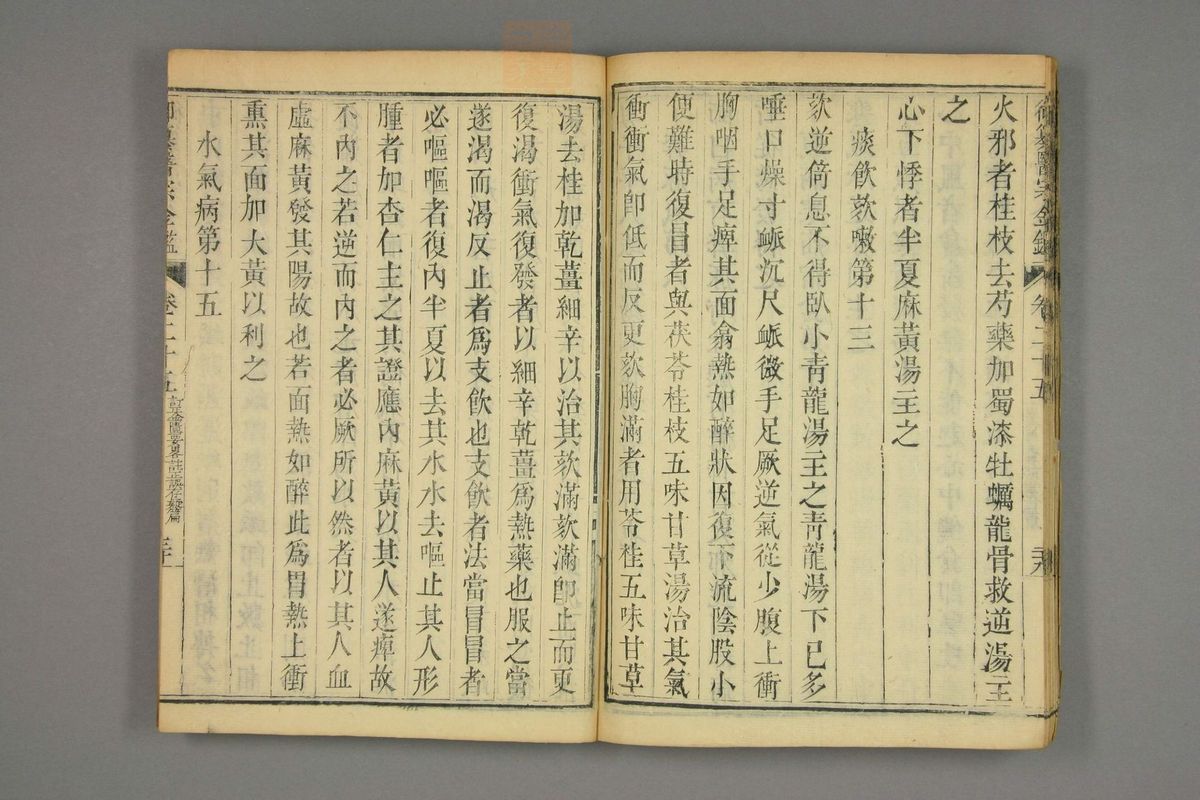 御纂醫宗金鑑 卷二十五
火邪者桂枝去芍藥加蜀漆牡蠣龍骨救逆湯主
之
心下悸者半夏麻黃湯主之
痰飲欬嗽第十三
欬逆倚息不得臥小青龍湯主之青龍湯下已多
唾口燥寸脈沉尺脈微手足厥逆氣從少腹上衝
胸咽手足痺其面翕熱如醉狀因復下流陰股小
便難時復冒者與茯苓桂枝五味甘草湯治其氣
衝衝氣卽低而反更欬胸滿者用苓桂五味甘草
湯去桂加乾薑細辛以治其欬滿欬滿卽止而更
復渴衝氣復發者以細辛乾薑爲熱藥也服之當
遂渴而渴反止者爲支飲也支飲者法當冒冒者
必嘔嘔者復內半夏以去其水水去嘔止其人形
腫者加杏仁主之其證應內麻黃以其人遂痺故
不內之若逆而內之者必厥所以然者以其人血
虛麻黃發其陽故也若面熱如醉此爲胃熱上衝
熏其面加大黃以利之
水氣病第十五
御纂醫宗金鑑 卷二十五